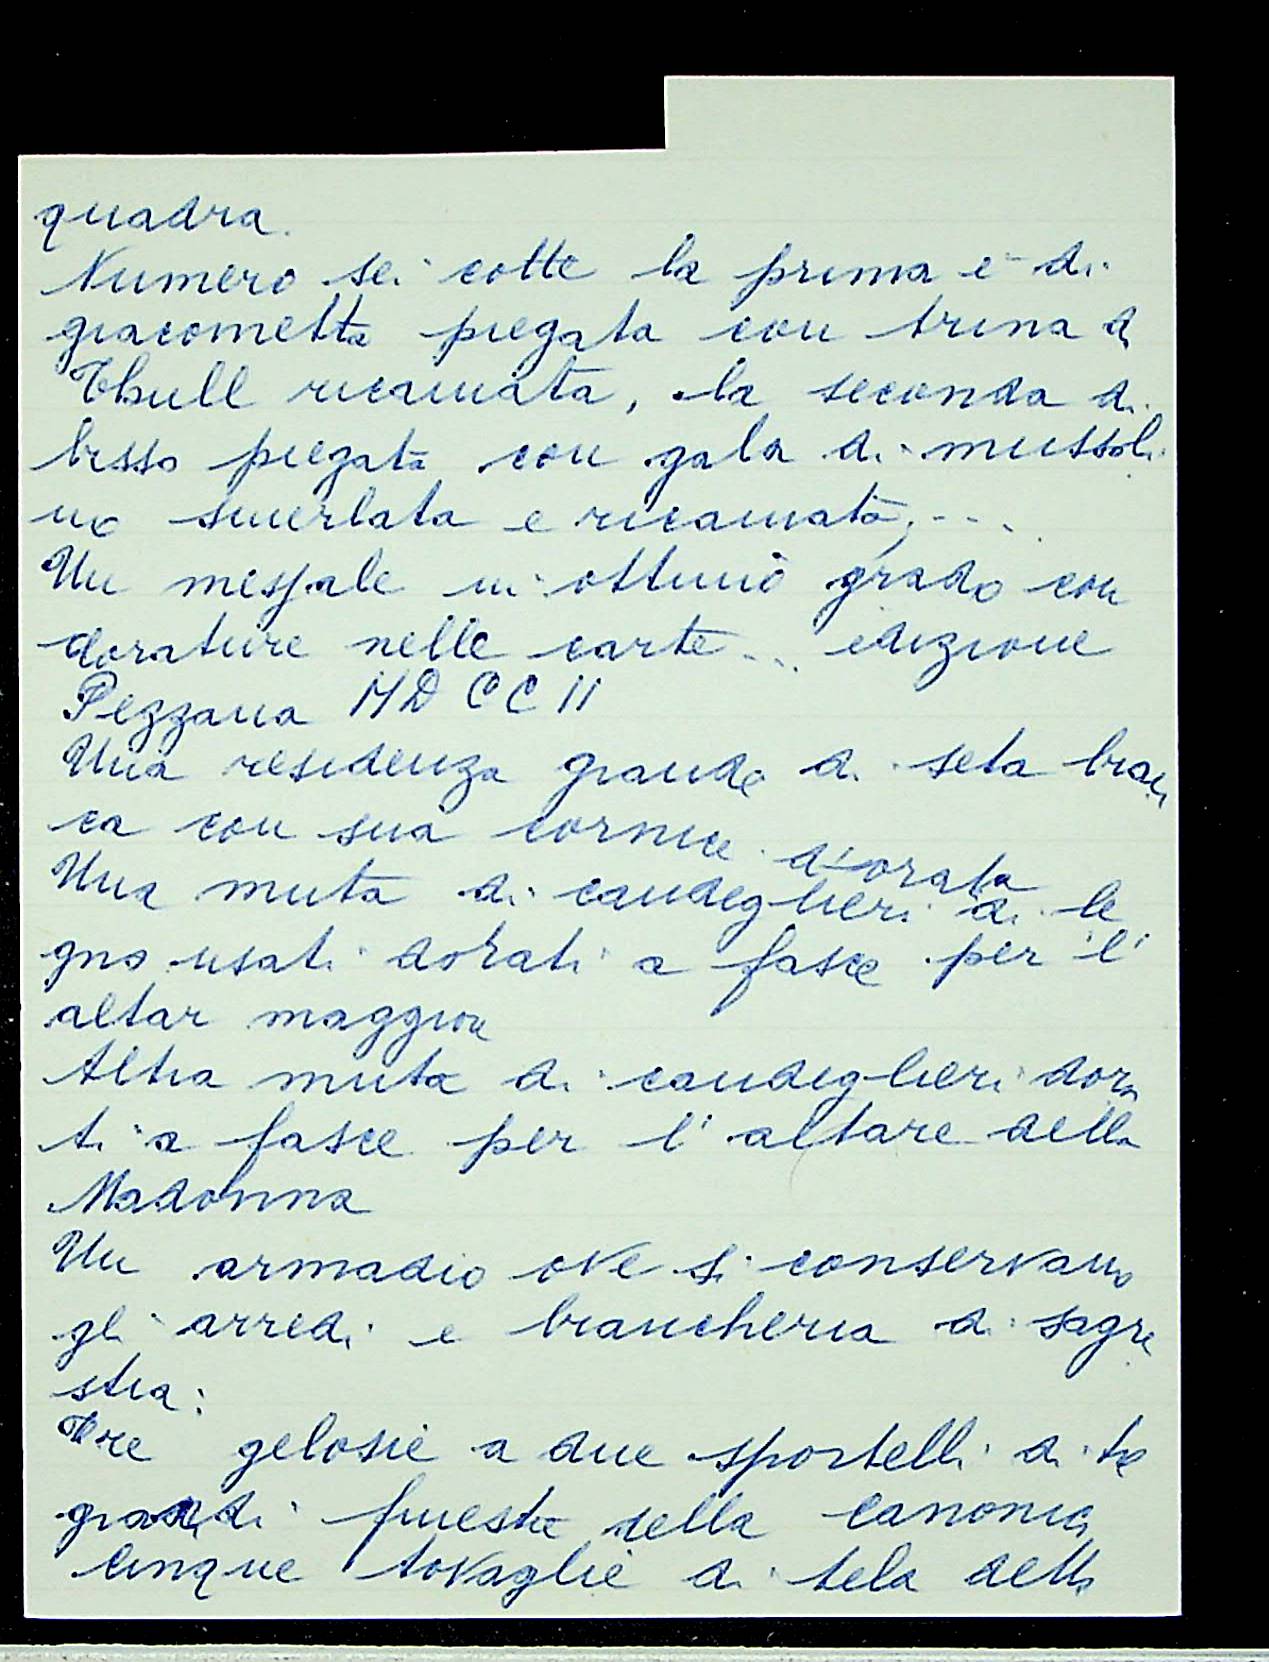 quadra.
Numero sei cotte la prima è di
giacometta piegata con trina di
Thull ricamata, la seconda di
bisso piegata con gala di mussoli
no smerlata e ricamata, ...
Un messale in ottimo grado con
dorature nelle carte ... edizione
Pezzana MDCCII
Una residenza grande di seta bian
ca con sua cornice dorata
Una muta di candeglieri di le
gno usati dorati a fasce per l'
altar maggiore
Altra muta di candeglieri dora
ti a fasce per l'altare della
Madonna
Un armadio ove si conservano
gli arredi e biancheria di sagre
stia:
Tre gelosie a due sportelli di tre
grandi finestre della canonica
Cinque tovaglie di tela detto